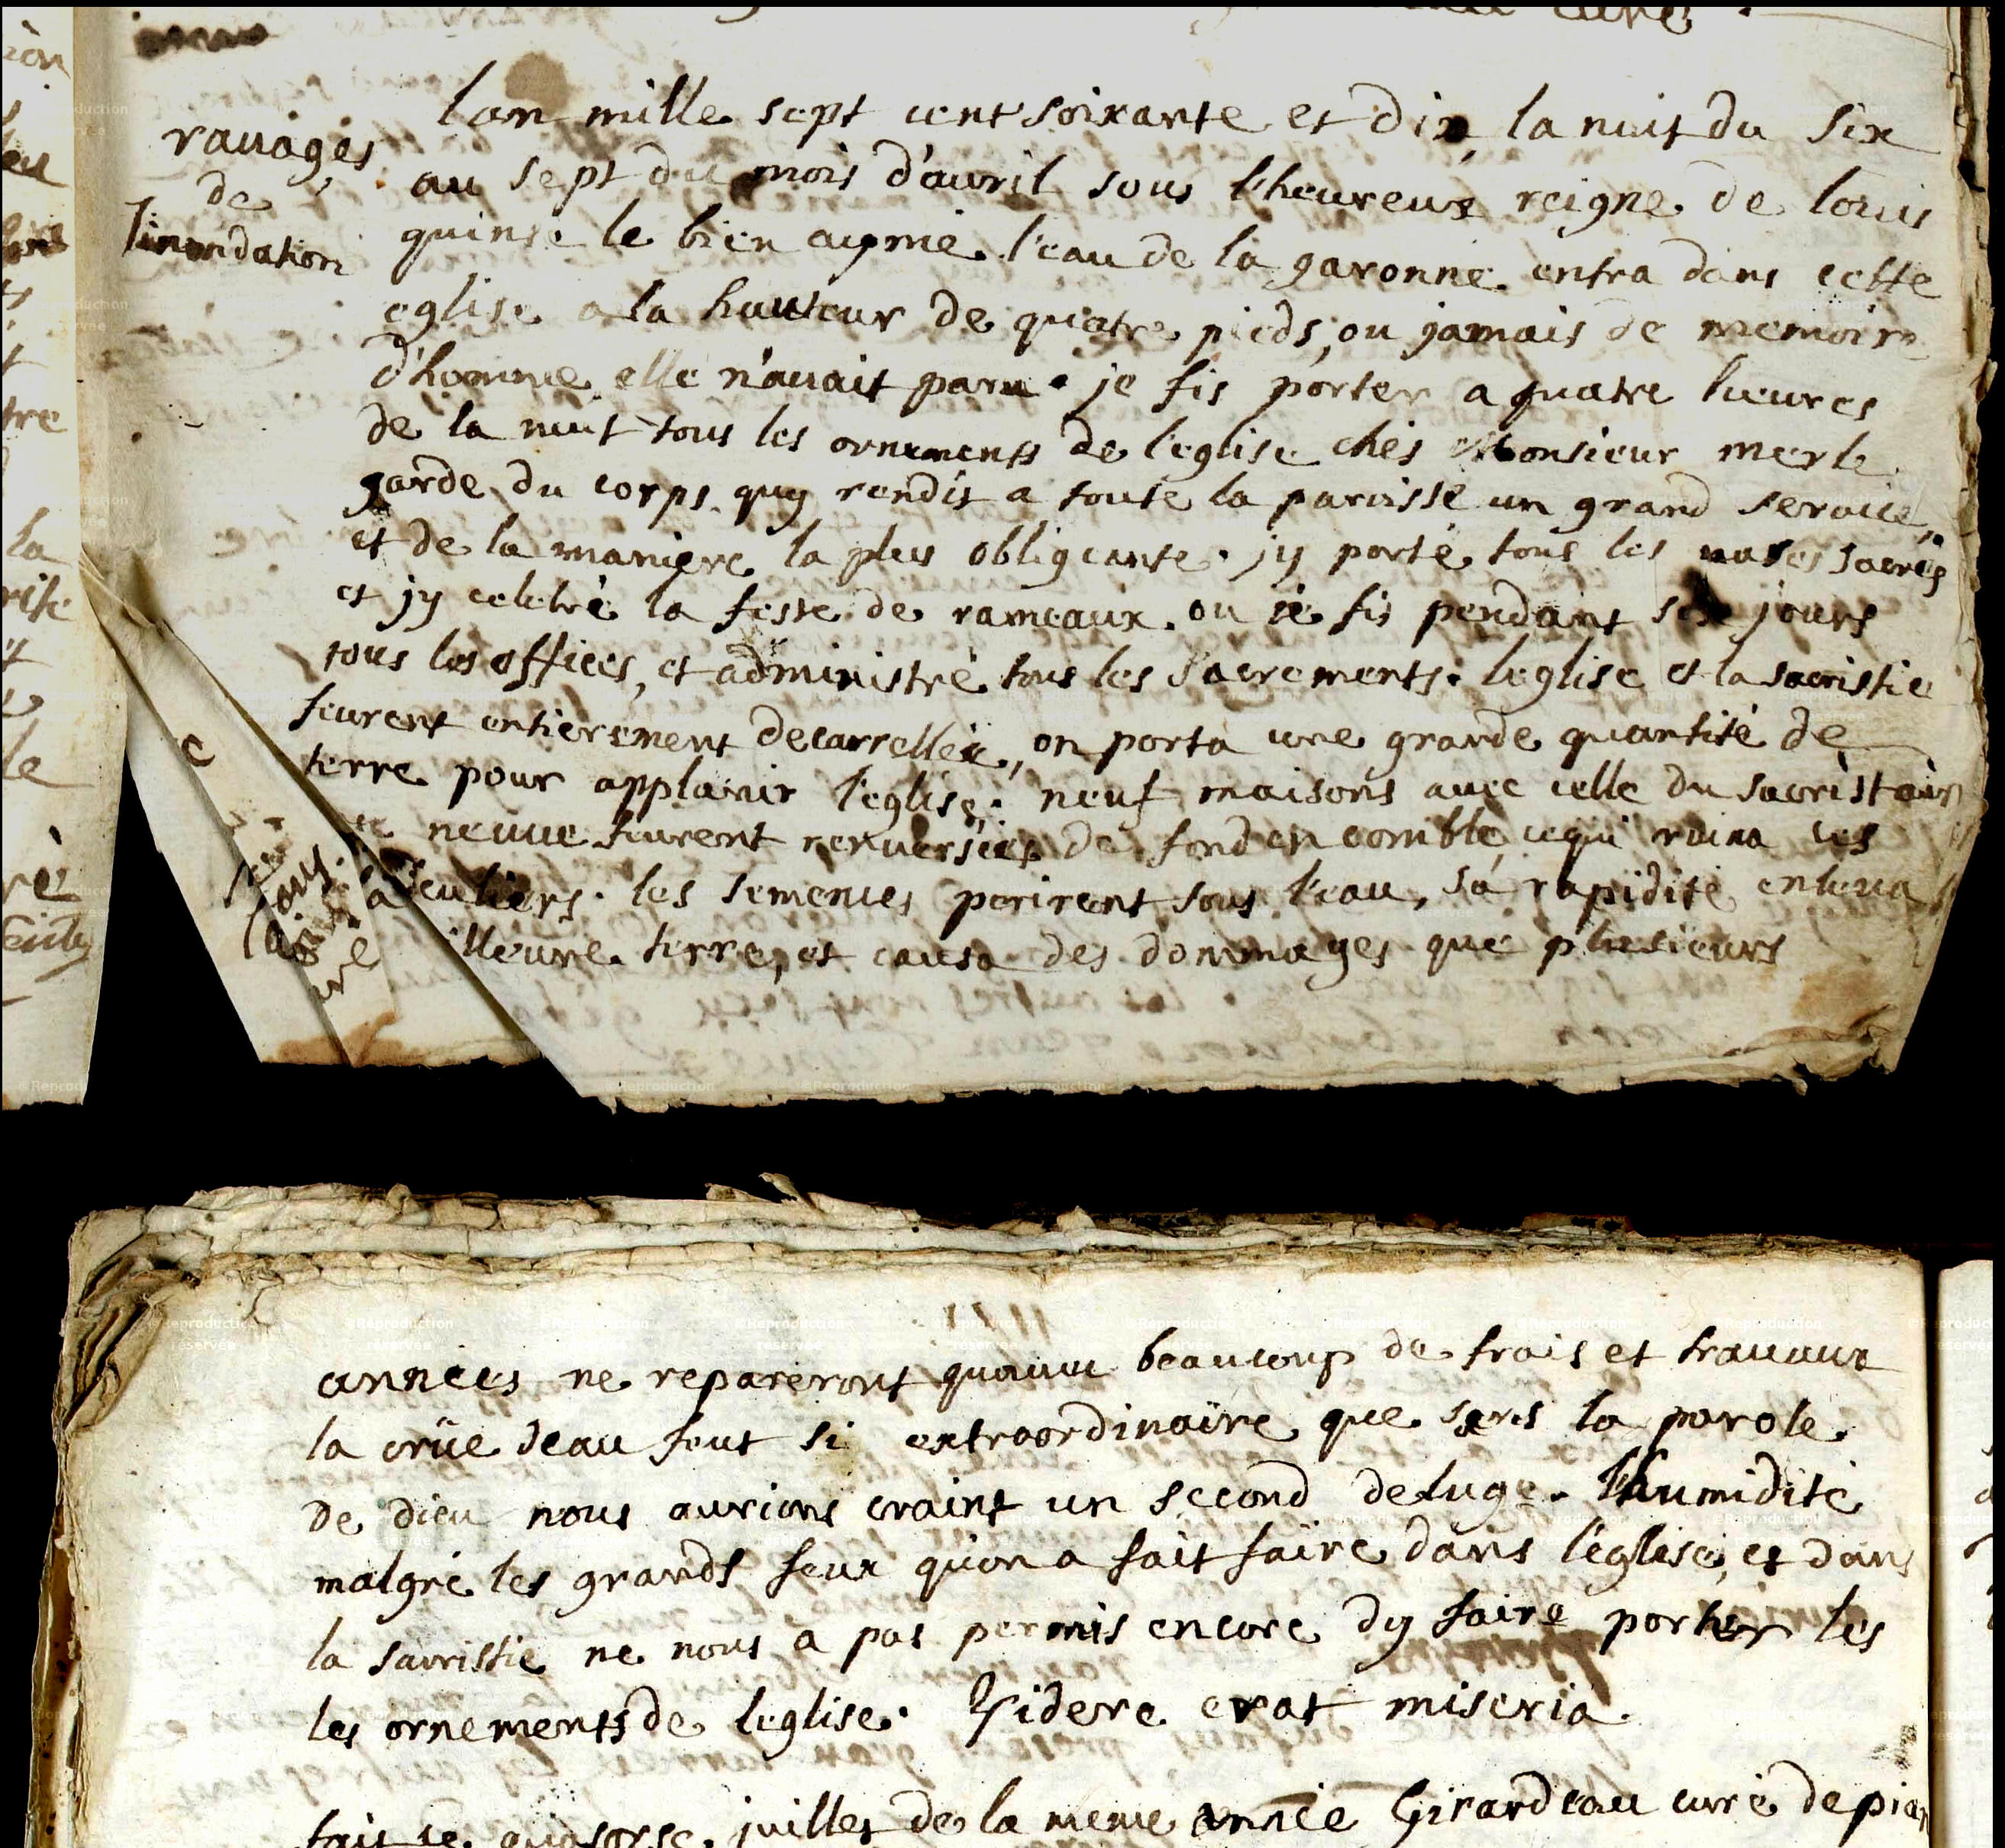 ravages
de
l'inondation
lan mille sept cent soixante et dix, la nuit du six
au sept du mois d'avril sous l'heureux reigne de louis
quinse le bien aymé l'eau de la garonne entra dans cette
eglise a la hauteur de quatre pieds, ou jamais de memoire
d'homme elle n'avait paru. je fis porter a quatre heures
de la nuit tous les ornements de l'eglise chés Monsieur merle
garde du corps quy rendit a toute la paroisse un grand service,
et de la maniere la plus obligeante. jy porté tous les vases sacrés
et jy celebré la feste de rameaux. ou je fis pendant six jours
tous les offices, et administré tous les sacrements. leglise et la sacristie
feurent entierement decarrellés, on porta une grande quantité de
terre pour applanir l'eglise. neuf maisons avec celle du sacristain
neuve feurent renversées de fond en comble, cequi ruina ces
les semences perirent sous l'eau, sa rapidité enleva
terre, et causa des dommages que plusieurs
années ne repareront quavec beaucoup de frais et travaux
la crüe deau feut si extraordinaire que sans la parole
de dieu nous aurions craint un second deluge. l'humidité
malgré les grands feux qu'on a fait faire dans l'eglise, et dans
la sacristie ne nous a pas permis encore dy faire porter les
les ornements de leglise. Videre erat miseria.
fait ce quatorse juillet de la meme année Girardeau curé de pian